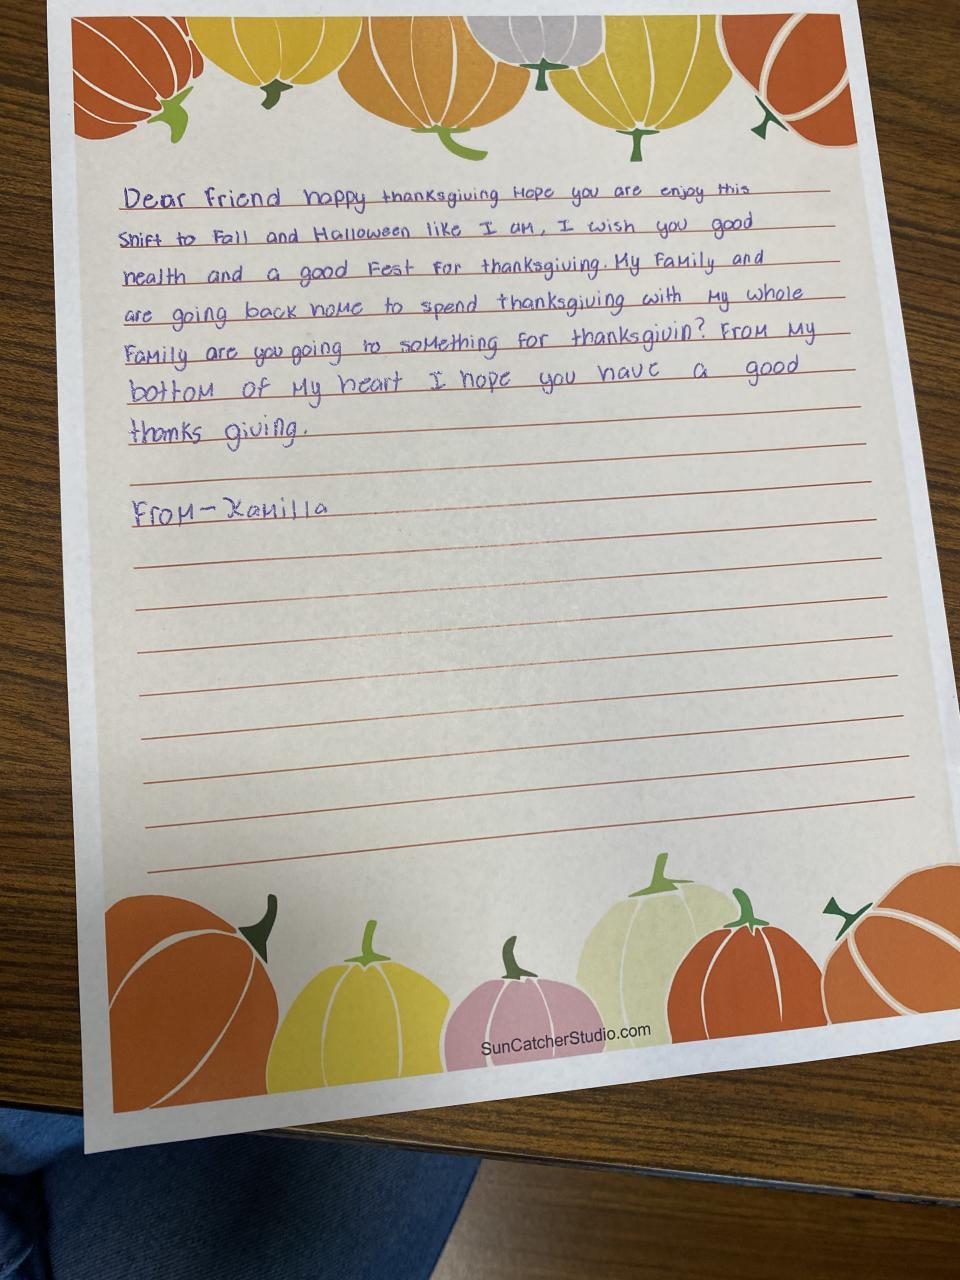 Dear friend happy thanksgiving Hope you are enjoy this
shift to Fall and Halloween like I am, I wish you good
health and a good Fest for thanksgiving. My Family and
are going back home to spend thanksgiving with My whole
Family are you going to something for thanksgivin? From My
bottom of My heart I hope you have a good
thanks giving.
From- Xamilla
SunCatcherStudio.com